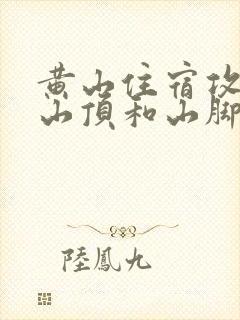 黄山住宿攻
山頂和山脚
陸鳳九